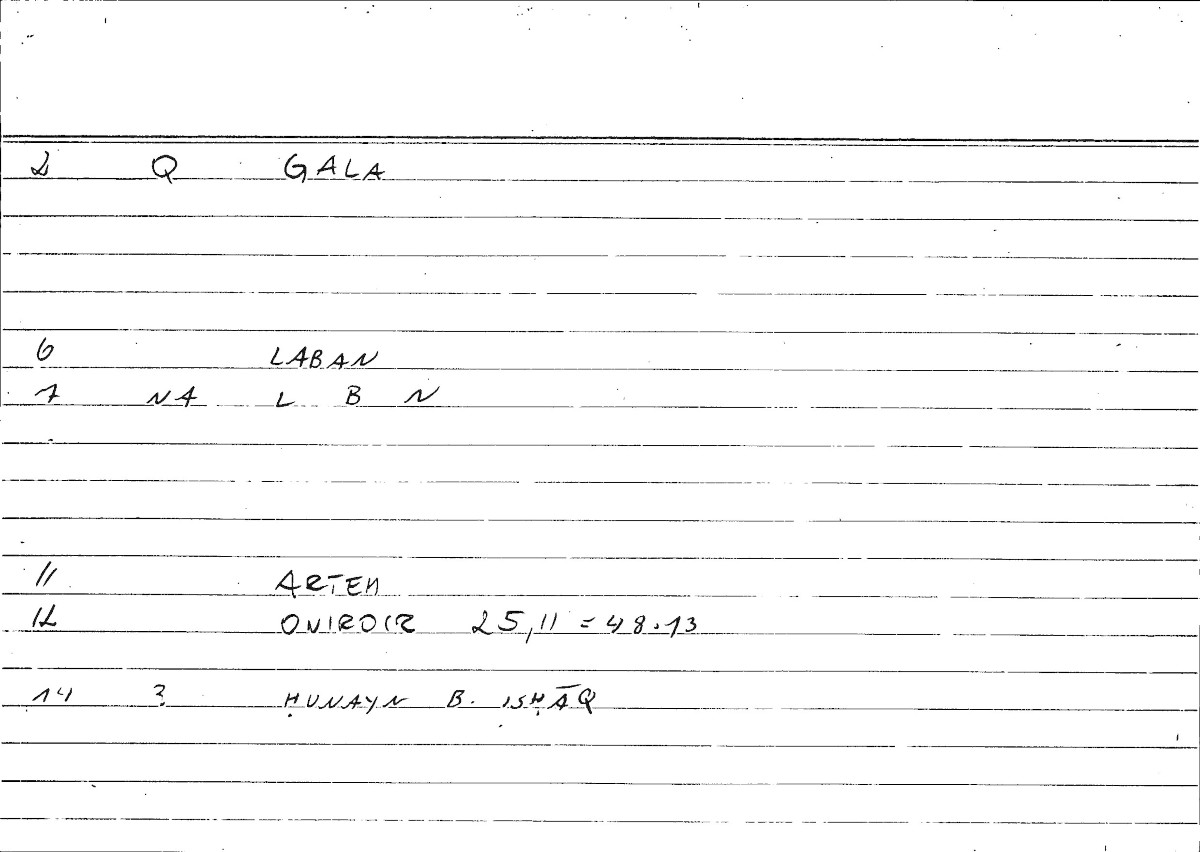 2 Q GALA
6 LABAN
7 NA L B N
11 ARTEM
12 ONIROIR 25,11 = 48.13
14 ? ḤUNAYN B. ISḤĀQ